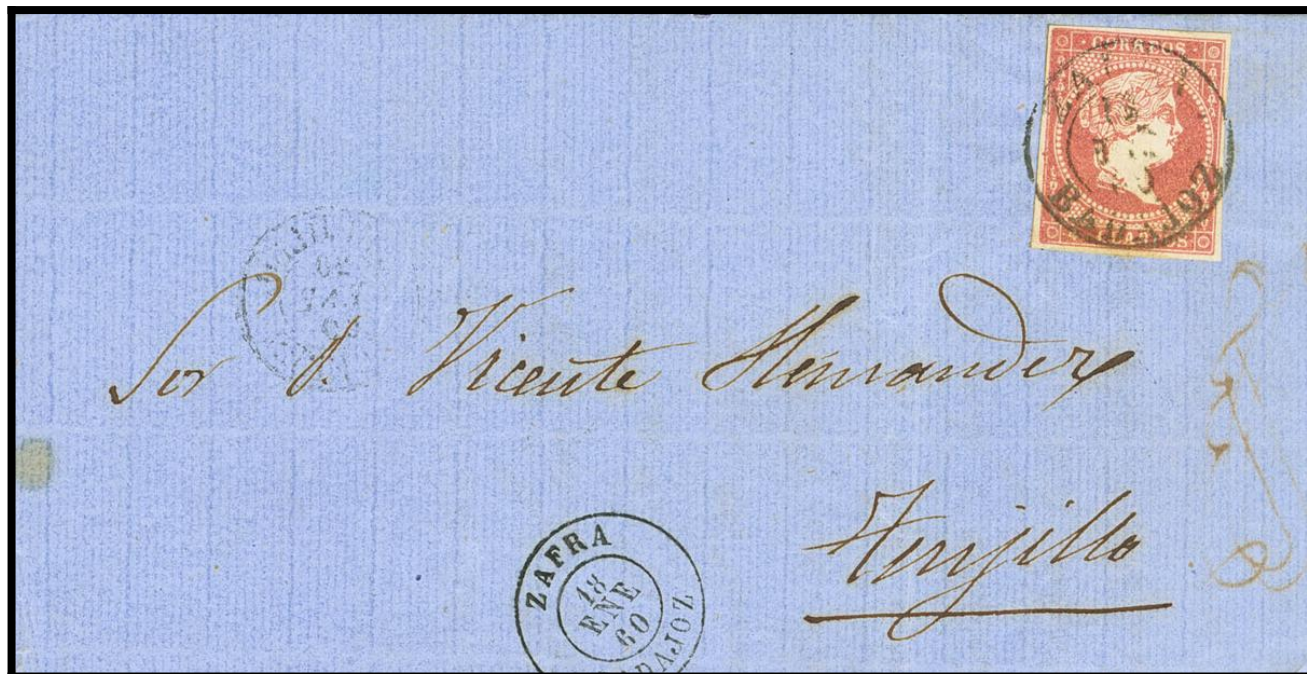 CORREOS
BADAJOZ
Sor D. Vicente Hernandez
Trujillo
ZAFRA
18
ENE
60
BADAJOZ